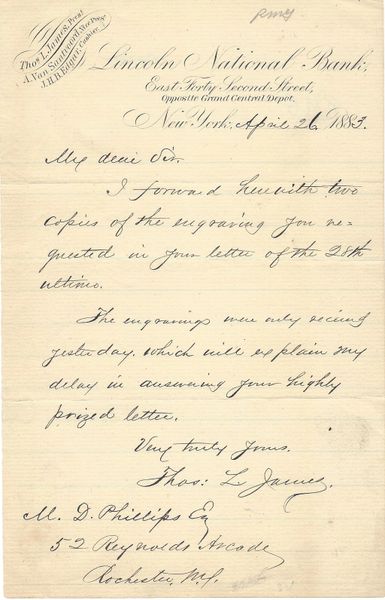 PMG
Thos. L. James, Prest.
A. Van Santvoord, Vice Prest.
J.H.B. Edgar, Cashier.
Lincoln National Bank,
East Forty Second Street,
Opposite Grand Central Depot.
New York, April 26 1883.
My dear Sir.
I forward herewith two
copies of the engraving you re-
quested in your letter of the 28th
ultimo.
The engravings were only received
yesterday, which will explain my
delay in answering your highly
prized letter.
Very truly yours.
Thos: L James,
M. D. Phillips Esq
52 Reynolds Arcade,
Rochester, N.Y.